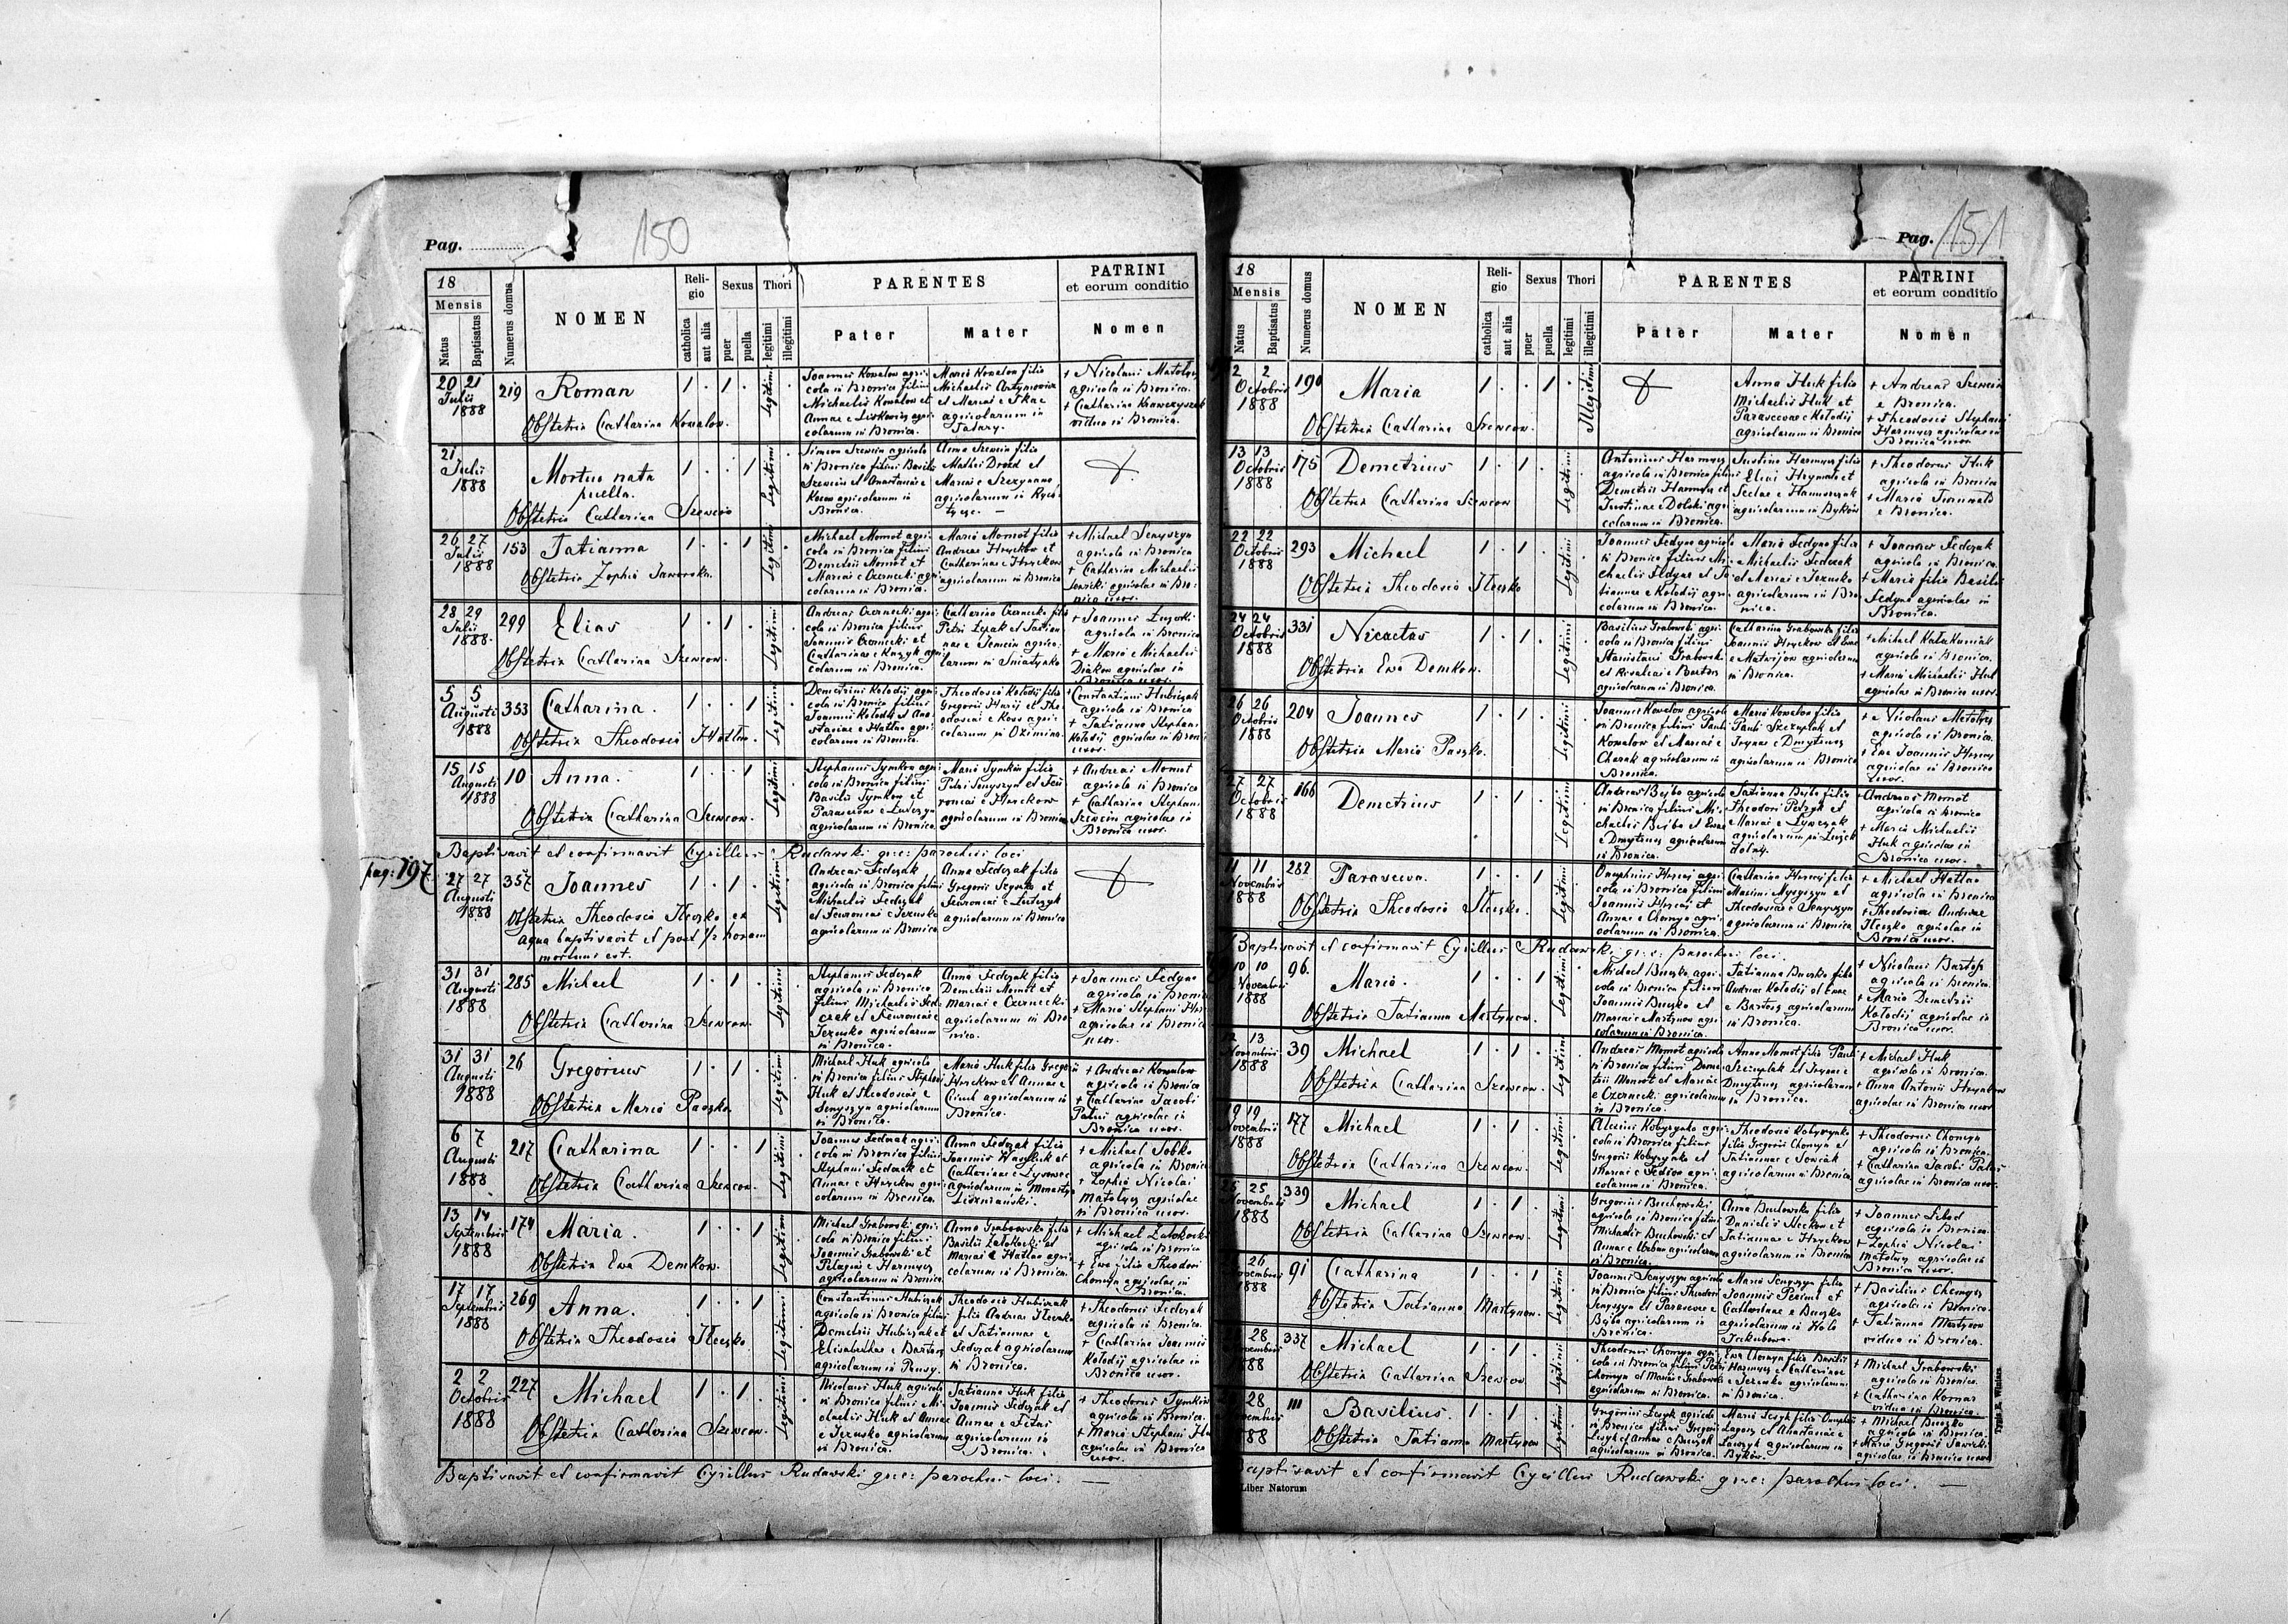 Pag. 150
18
Mensis
Natus
Baptisatus
Numerus domus
NOMEN
Religio
catholica
aut alia
Sexus
puer
puella
Thori
legitimi
illegitimi
PARENTES
Pater
Mater
PATRINI
et eorum conditio
Nomen
20 21
Julii
1888
219
Roman
Obstetrix Catharina Kowalow.
Legitimi
Joannes Kowalow agri-
cola in Bronica filius
Michaelis Kowalow et
colarum in Bronica.
Maria Kowalow filia
Michaelis Artymowicz
et Mariae e Tkac
agricolarum in
Tatary.
+ Nicolaus Matolycz
agricola in Bronica.
+ Catharina
vidua in Bronica.
21
Julii
1888
Mortuo nata
puella.
Obstetrix Catharina Szewców
Legitimi
Simeon Szewciw agricola
in Bronica filius Basilii
Szewciw et Anastasiae e
agricolarum in
Bronica.
Anna Szewciw filia
Mathei Drozd et
agricolarum in Rych-
tycze. —
26 27
Julii
1888
153
Tatianna
Obstetrix Zophia Jaworska.
Legitimi
Michael Momot agri-
cola in Bronica filius
Demetrii Momot et
Mariae e Czernecki agri-
colarum in Bronica.
Maria Momot filia
Andreae Hryckow et
Catharinae e Hryckow
agricolarum in Bronica
+ Michael Senyszyn
agricola in Bronica
+ Catharina Michaelis
agricolae in Bro-
nica uxor.
28 29
Julii
1888.
299
Elias
Obstetrix Catharina Szewcow.
Legitimi
Andreas Czernecki agri-
cola in Bronica filius
Joannis Czernecki et
Catharinae e Kuzyk agri-
colarum in Bronica.
Catharina Czernecka filia
Petri Lepak et Tatian-
nae e Semcin agrico-
larum in Sniatynka
+ Joannes
agricola in Bronica
+ Maria Michaelis
Diakow agricolae in
Bronica uxor.
5 5
Augusti
1888
353
Catharina.
Obstetrix Theodosia Hatlao.
Legitimi
Demetrius Kolodij agri-
cola in Bronica filius
Joannis Kolodij et Ana-
stasiae e Hatlao agri-
colarum in Bronica.
Theodosia Kolodij filia
Gregorii Hurij et The-
odosiae e Koss agri-
colarum in Ozimina.
+ Constantinus Hubiszak
agricola in Bronica
+ Tatianna Stephani
Kolodij agricolae in Bronica
uxor.
15 15
Augusti
1888
10
Anna.
Obstetrix Catharina Szewcow.
Legitimi
Stephanus Tymkow agri-
cola in Bronica filius
Basilii Tymkow et
agricolarum in Bronica
Maria Tymkow filia
Petri Senyszyn et Feu-
roniae e Hryckow
agricolarum in Bronica
+ Andreas Momot
agricola in Bronica
+ Catharina Stephani
Szewciw agricolae in
Bronica uxor.
Baptisavit et confirmavit Cyrillus Rudawski gr:c: parochus loci
pag: 197
27 27
Augusti
1888
357
Joannes
Obstetrix Theodosia Ileczko ex
aqua baptisavit et post 1/2 horam
mortuus est.
Legitimi
Andreas Fedczak
agricola in Bronica filius
Michaelis Fedczak
et Feuroniae e Jezusko
agricolarum in Bronica
Anna Fedczak filia
agricolarum in Bronica
31 31
Augusti
1888
285
Michael
Obstetrix Catharina Szewcow.
Legitimi
Stephanus Fedczak
agricola in Bronica
filius Michaelis Fed-
czak et Feuroniae e
Jezusko agricolarum
in Bronica.
Anna Fedczak filia
Demetrii Momot et
Mariae e Czernecki
agricolarum in Bro-
nica.
+ Joannes Fedyna
agricola in Bronica
+ Maria Stephani
agricolae in Bronica
uxor.
31 31
Augusti
1888
26
Gregorius
Obstetrix Maria Paszko
Legitimi
Michael Huk agricola
in Bronica filius Stephani
Huk et Theodosiae e
Senyszyn agricolarum
in Bronica.
Maria Huk filia Gregorii
Hryckow et Annae e
agricolarum in
Bronica.
+ Andreas Kowalow
agricola in Bronica
+ Catharina Jacobi
agricolae in
Bronica uxor.
6 7
Augusti
1888
217
Catharina
Obstetrix Catharina Szewcow.
Legitimi
Joannes Fedczak agri-
cola in Bronica filius
Stephani Fedczak et
Annae e Hryckow agri-
colarum in Bronica.
Anna Fedczak filia
Joannis Wasyluk et
agricolarum in
+ Michael Sobko
agricola in Bronica
+ Zophia Nicolai
Matolycz agricolae
in Bronica uxor.
13 14
Septembris
1888
174
Maria.
Obstetrix Ewa Demkow.
Legitimi
Michael Grabowski agri-
cola in Bronica filius
Joannis Grabowski et
Pelagiae e Harmycz
agricolarum in Bronica.
Anna Grabowska filia
Basilii Zatokocki et
Mariae e Hatlao agri-
colarum in Bronica.
+ Michael Zatokocki
agricola in Bronica
+ Ewa filia Theodori
Chomyn agricolae in
Bronica.
17 17
Septembris
1888
269
Anna.
Obstetrix Theodosia Ileczko
Legitimi
Constantinus Hubiszak
agricola in Bronica filius
Demetrii Hubiszak et
Elisabethae e Bartosz
agricolarum in Prusy.
Theodosia Hubiszak
filia Andreae Ileczko
et Tatiannae e
Fedczak agricolarum
in Bronica.
+ Theodorus Fedczak
agricola in Bronica.
+ Catharina Joannis
Kolodij agricolae in
Bronica uxor.
2 2
Octobris
1888
227
Michael
Obstetrix Catharina Szewcow.
Legitimi
Nicolaus Huk agricola
in Bronica filius Mi-
chaelis Huk et Annae
e Jezusko agricolarum
in Bronica.
Tatianna Huk filia
Joannis Fedczak et
Annae e
agricolarum in
Bronica.
+ Theodorus Tymkow
agricola in Bronica.
+ Maria Stephani Huk
agricolae in Bronica
uxor.
Baptisavit et confirmavit Cyrillus Rudawski gr:c: parochus loci. —
Pag. 151
18
Mensis
Natus
Baptisatus
Numerus domus
NOMEN
Religio
catholica
aut alia
Sexus
puer
puella
Thori
legitimi
illegitimi
PARENTES
Pater
Mater
PATRINI
et eorum conditio
Nomen
2 2
Octobris
1888
190
Maria
Obstetrix Catharina Szewcow.
Illegitimi
Anna Huk filia
Michaelis Huk et
Parascevae e Kolodij
agricolarum in Bronica
+ Andreas Szewciw
e Bronica.
+ Theodosia Stephani
Harmycz agricolae in
Bronica uxor.
13 13
Octobris
1888
175
Demetrius
Obstetrix Catharina Szewcow
Legitimi
Antonius Harmycz
agricola in Bronica filius
Demetrii Harmycz et
Justinae e Dolski agri-
colarum in Bronica.
Justina Harmycz filia
Eliae Hrynyk et
agricolarum in Byków
+ Theodorus Huk
agricola in Bronica
+ Maria
e Bronica.
22 22
Octobris
1888
293
Michael
Obstetrix Theodosia Ileczko
Legitimi
Joannes Fedyna agricola
in Bronica filius Mi-
chaelis Fedyna et Ta-
tiannae e Kolodij agri-
colarum in Bronica.
Maria Fedyna filia
Michaelis Fedczak
et Mariae e Jezusko
agricolarum in Bro-
nica.
+ Joannes Fedczak
agricola in Bronica.
+ Maria filia Basilii
Fedyna agricolae in
Bronica.
24 24
Octobris
1888
331
Nicaetas
Obstetrix Ewa Demkow.
Legitimi
Basilius Grabowski agri-
cola in Bronica filius
Stanislaui Grabowski
et Rosaliae e Bartosz
agricolarum in Bronica.
Catharina Grabowska filia
Joannis Hryckow et Ewae
e Matwijow agricolarum
in Bronica.
+ Michael
agricola in Bronica.
+ Maria Michaelis Huk
agricolae in Bronica uxor.
26 26
Octobris
1888
204
Joannes
Obstetrix Maria Paszko.
Legitimi
Joannes Kowalow agricola
in Bronica filius Pauli
Kowalow et Mariae e
agricolarum in
Bronica.
Maria Kowalow filia
Pauli Szczuplak et
Irynae e Dmytrusz
agricolarum in Bronica
+ Nicolaus Matolycz
agricola in Bronica.
+ Ewa Joannis
agricolae in Bronica
uxor.
27 27
Octobris
1888
166
Demetrius
Legitimi
Andreas Bejbo agricola
in Bronica filius Mi-
chaelis Bejbo et Ewae
e Dmytrusz agricolarum
in Bronica.
Tatianna Bejbo filia
Theodori Petryk et
Mariae e
agricolarum in Luzek
dolny.
+ Andreas Momot
agricola in Bronica
+ Maria Michaelis
Huk agricolae in
Bronica uxor.
11 11
Novembris
1888
282
Parasceva.
Obstetrix Theodosia Ileczko.
Legitimi
agricola in Bronica filius
Annae e Chomyn agri-
colarum in Bronica.
Theodosiae e Senyszyn
agricolarum in Bronica
+ Michael Hatlao
agricola in Bronica
+ Theodosia Andreae
Ileczko agricolae in
Bronica uxor.
Baptisavit et confirmavit Cyrillus Rudawski gr:c: parochus loci.
10 10
Novembris
1888
96.
Maria.
Obstetrix Tatianna Martynow.
Legitimi
Michael Buczko agri-
cola in Bronica filius
Joannis Buczko et
Mariae e Martynow agri-
colarum in Bronica.
Tatianna Buczko filia
Andreae Kolodij et Ewae
e Bartosz agricolarum
in Bronica.
+ Nicolaus Bartosz
agricola in Bronica.
+ Maria Demetrii
Kolodij agricolae in
Bronica uxor.
13
Novembris
1888
39
Michael
Obstetrix Catharina Szewcow.
Legitimi
Andreas Momot agricola
in Bronica filius Deme-
trii Momot et Mariae
e Czernecki agricolarum
in Bronica.
Anna Momot filia Pauli
Szczuplak et Irynae e
Dmytrusz agricolarum
in Bronica.
+ Michael Huk
agricola in Bronica.
+ Anna Antonii
agricolae in Bronica uxor.
19 19
Novembris
1888
177
Michael
Obstetrix Catharina Szewcow.
Legitimi
Alexius Kobyrynka agri-
cola in Bronica filius
Gregorii Kobyrynka et
Mariae e Fediow agri-
colarum in Bronica.
Theodosia Kobyrynka
filia Gregorii Chomyn et
Tatiannae e
agricolarum in Bronica
+ Theodorus Chomyn
agricola in Bronica.
+ Catharina Jacobi
agricolae in Bronica uxor.
25 25
Novembris
1888
339
Michael
Obstetrix Catharina Szewcow.
Legitimi
Gregorius Buchowski
agricola in Bronica filius
Michaelis Buchowski et
Annae e Urban agricolarum
in Bronica.
Anna Buchowska filia
Danielis Ileczko et
Tatiannae e Hryckow
agricolarum in Bronica
+ Joannes
agricola in Bronica.
+ Zophia Nicolai
Matolycz agricolae in
Bronica uxor.
26
Novembris
1888
91
Catharina
Obstetrix Tatianna Martynow.
Legitimi
Joannes Senyszyn agricola
in Bronica filius Theodori
Senyszyn et Parascevae e
Bejbo agricolarum in
Bronica.
Maria Senyszyn filia
Catharinae e Buczko
agricolarum in Wola
Jakubowa.
+ Basilius
agricola in Bronica.
+ Tatianna Martynow
vidua in Bronica.
28
Novembris
1888
337
Michael
Obstetrix Catharina Szewcow
Legitimi
Theodorus Chomyn agri-
cola in Bronica filius Petri
Chomyn et Mariae e Grabowski
agricolarum in Bronica.
Ewa Chomyn filia Basilii
Harmycz et Catharinae
e Jezusko agricolarum
in Bronica.
+ Michael Grabowski
agricola in Bronica.
+ Catharina Komar
vidua in Bronica.
28
Novembris
1888
111
Basilius.
Obstetrix Tatianna Martynow
Legitimi
Gregorius Lesyk agricola
in Bronica filius Gregorii
Lesyk et Annae e Buczko
agricolarum in Bronica.
Maria Lesyk filia Onuphrii
agricolarum in
Byków.
+ Michael Buczko
agricola in Bronica.
+ Maria Gregorii
agricolae in Bronica uxor
Baptisavit et confirmavit Cyrillus Rudawski gr:c: parochus loci. —
Liber Natorum